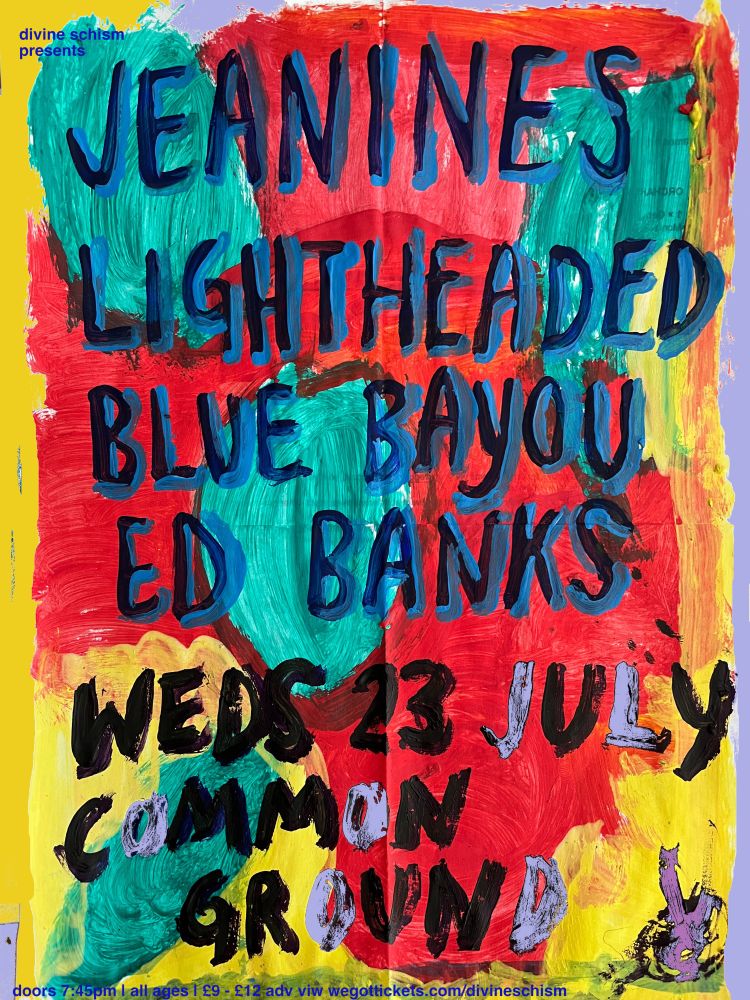 divine schism
presents
JEANINES
LIGHTHEADED
BLUE BAYOU
ED BANKS
WEDS 23 JULY
COMMON
GROUND
doors 7:45pm | all ages | £9 - £12 adv viw wegottickets.com/divineschism